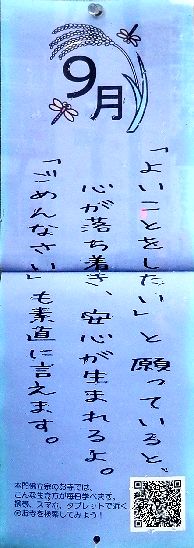 9月
「よいことをしたい」と願っていると、
心が落ち着き、安心が生まれるよ。
「ごめんなさい」も素直に言えます。
本門佛立宗のお寺では、
こんな生き方が毎日学べます。
是非、スマホ、タブレットで近く
のお寺を検索してみよう!